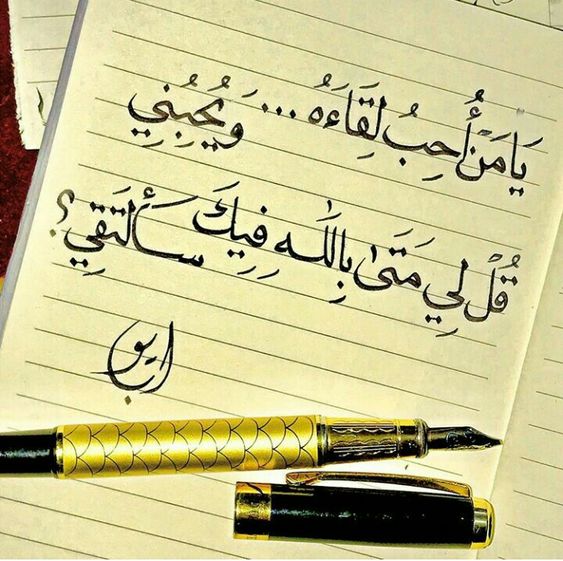 يَا مَنْ أُحِبُ لِقَاءَهُ ... وَيُحِبُنِي
قُلْ لِي مَتَى بِاللَّهِ فِيكَ سَأَلْتَقِي؟